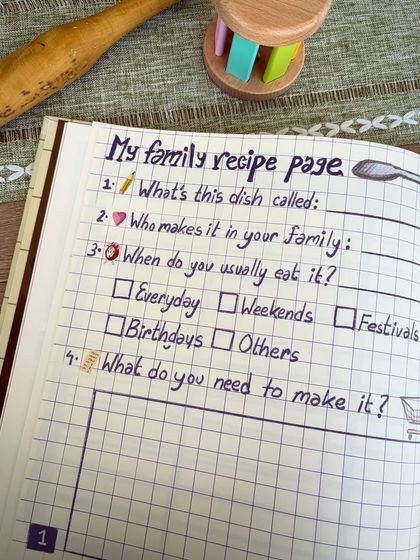 My family recipe page
1. What's this dish called:
2. Who makes it in your family:
3. When do you usually eat it?
Everyday Weekends Festivals
Birthdays Others
4. What do you need to make it?
1